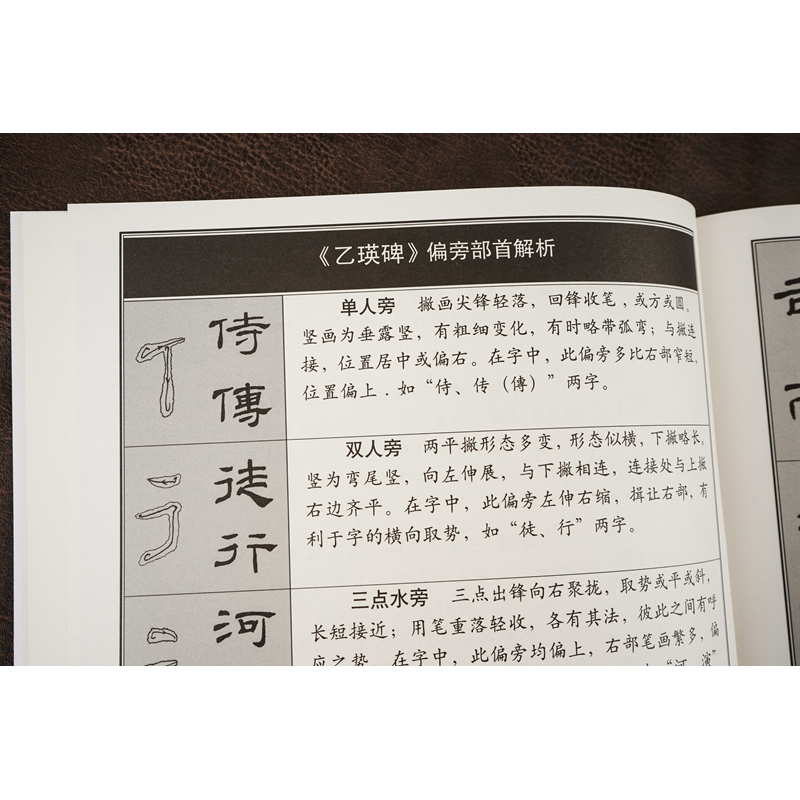 《乙瑛碑》偏旁部首解析
侍
傳
单人旁 撇画尖锋轻落，回锋收笔，或方或圆。
竖画为垂露竖，有粗细变化，有时略带弧弯；与撇连
接，位置居中或偏右。在字中，此偏旁多比右部窄短，
位置偏上．如“侍、传（傳）”两字。
徒
行
双人旁 两平撇形态多变，形态似横，下撇略长。
竖为弯尾竖，向左伸展，与下撇相连，连接处与上撇
右边齐平。在字中，此偏旁左伸右缩，揖让右部，有
利于字的横向取势，如“徒、行”两字。
河
三点水旁 三点出锋向右聚拢，取势或平或斜，
长短接近；用笔重落轻收，各有其法，彼此之间有呼
应之势。在字中，此偏旁均偏上，右部笔画繁多，偏
“河、演